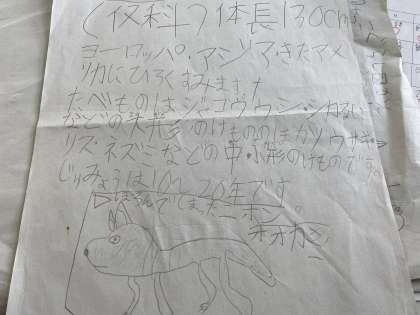 (仮科)体長130cm
ヨーロッパ.アジア.きたアメ
リカにひろくすみます.
たべものはジャコウウシ・シカるい
などの大形のけもののほか.ウサギ
リス・ネズミなどの中・小形のけものです.
じゅみょうは10〜20年です
ほろんでしまったニホン
オオカミ